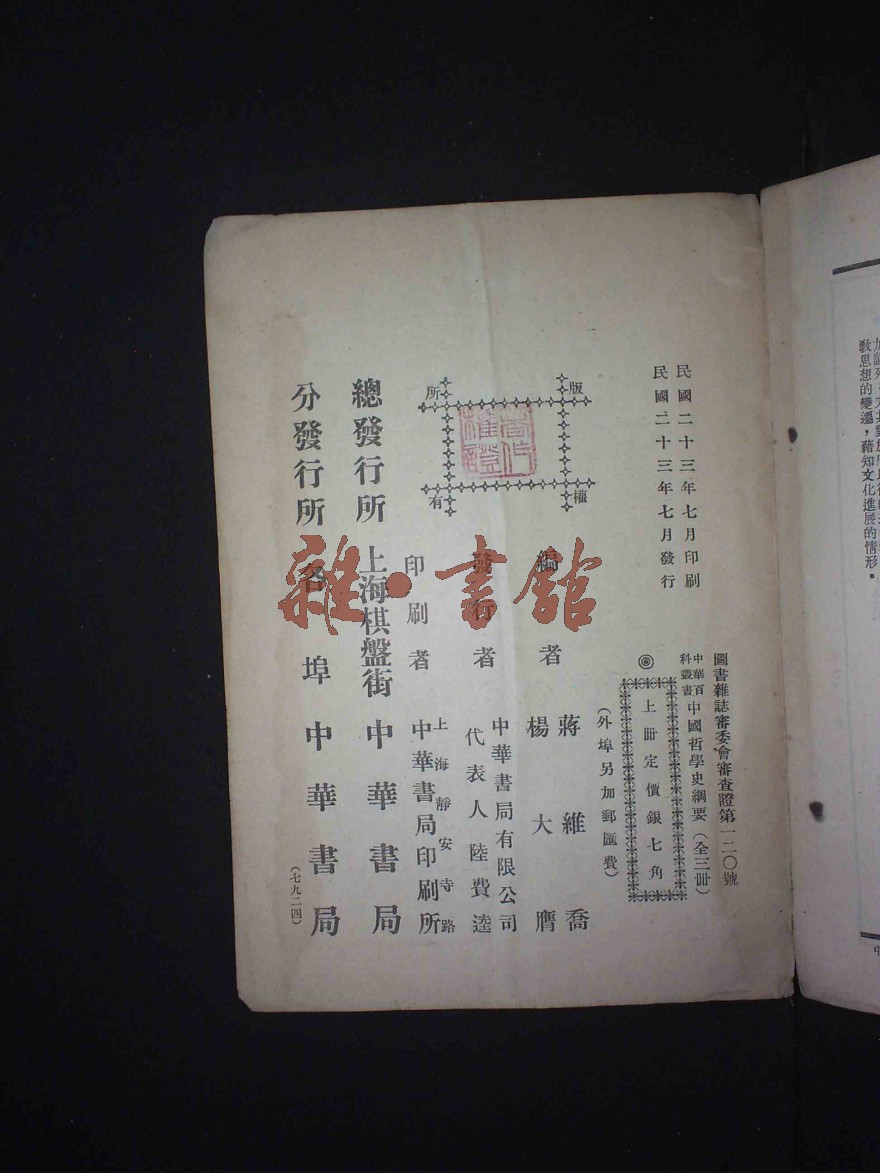 民國二十三年七月印刷
民國二十三年七月發行
圖書雜誌審委會審查證第一二〇號
中華百科叢書
中國哲學史綱要（全三冊）
◎
上冊定價銀七角
（外埠另加郵匯費）
版權所有
著作權證
編者
蔣維喬
楊大膺
發行者
中華書局有限公司
代表人陸費逵
印刷者
上海靜安寺路
中華書局印刷所
總發行所 上海棋盤街 中華書局
分發行所 各埠中華書局
（七九二四）
雜·書館
敎思想的變遷，藉知文化進展的情形。